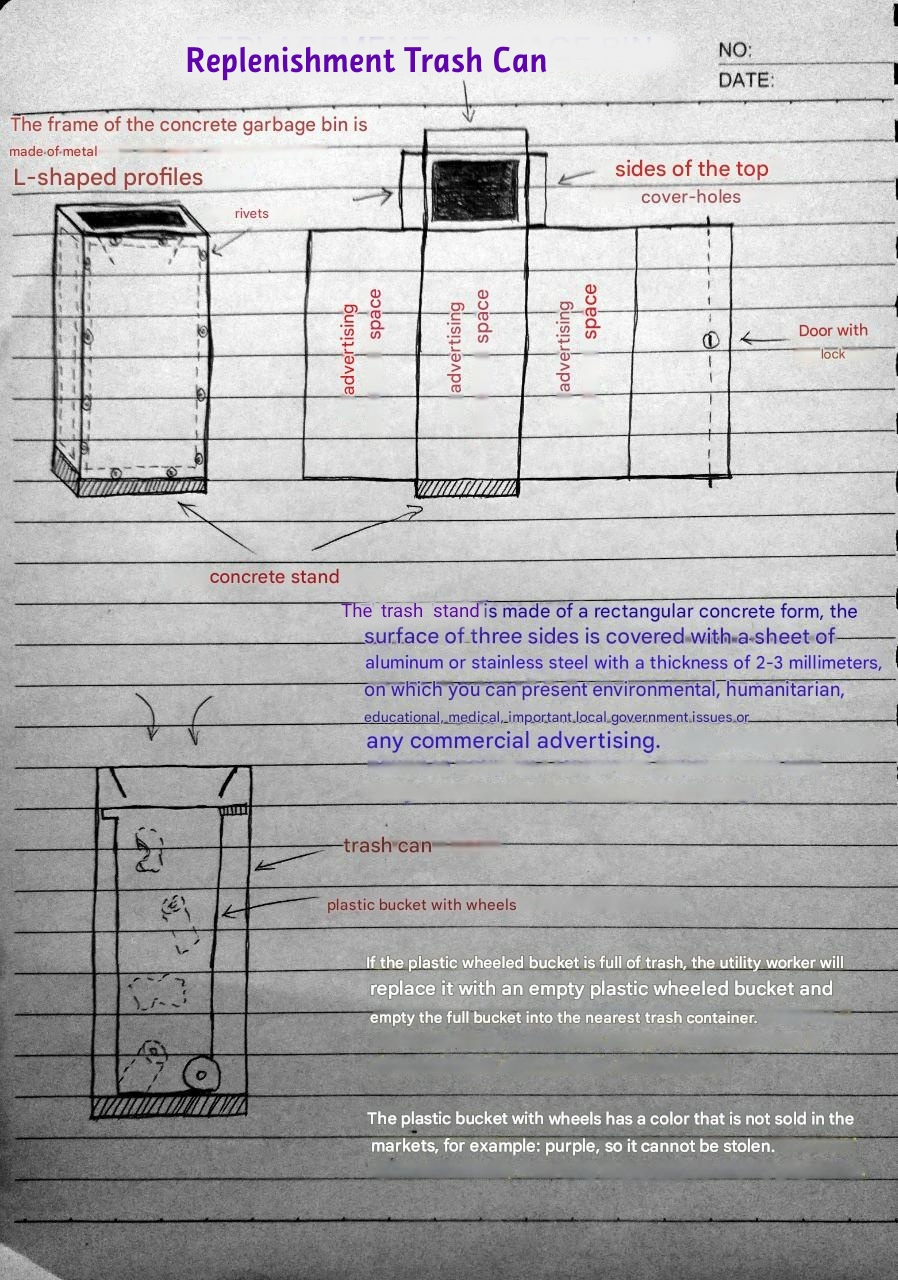 Replenishment Trash Can
NO:
DATE:
The frame of the concrete garbage bin is
made of metal
L-shaped profiles
rivets
sides of the top
cover-holes
advertising
space
advertising
space
advertising
space
Door with
lock
concrete stand
The trash stand is made of a rectangular concrete form, the
surface of three sides is covered with a sheet of
aluminum or stainless steel with a thickness of 2-3 millimeters,
on which you can present environmental, humanitarian,
educational, medical, important local government issues or
any commercial advertising.
trash can
plastic bucket with wheels
If the plastic wheeled bucket is full of trash, the utility worker will
replace it with an empty plastic wheeled bucket and
empty the full bucket into the nearest trash container.
The plastic bucket with wheels has a color that is not sold in the
markets, for example: purple, so it cannot be stolen.